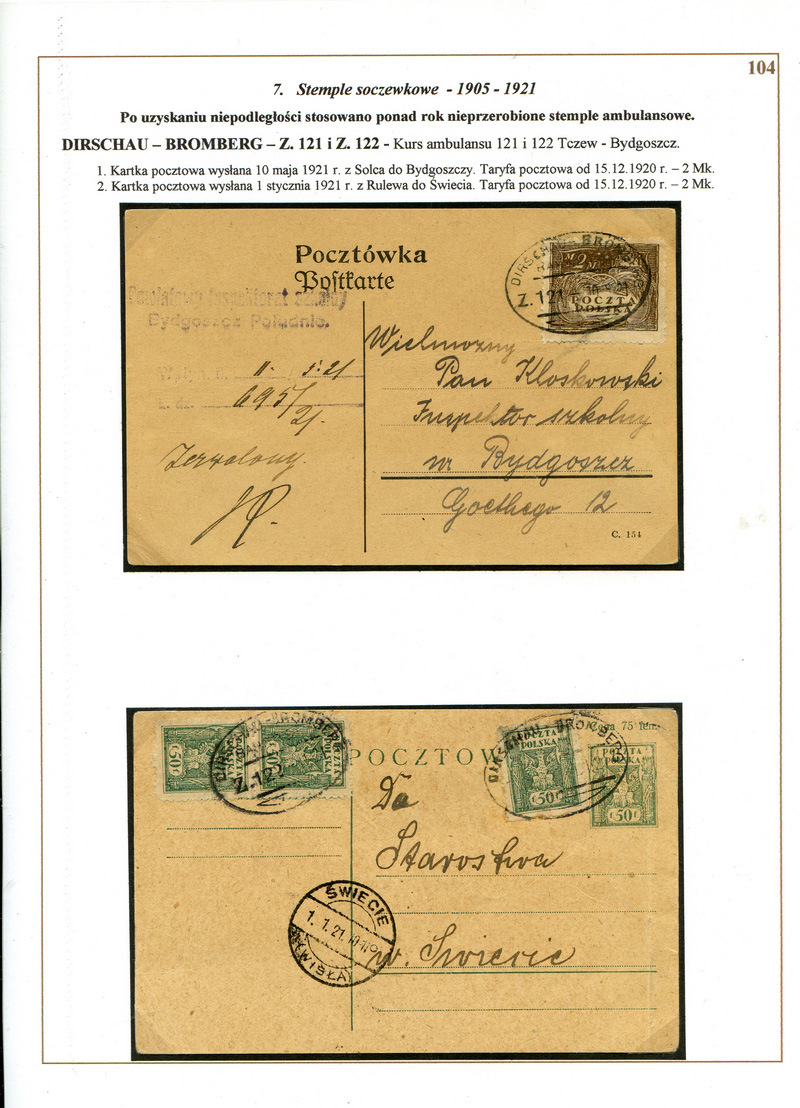 104
7. Stemple soczewkowe - 1905 - 1921
Po uzyskaniu niepodległości stosowano ponad rok nieprzerobione stemple ambulansowe.
DIRSCHAU – BROMBERG – Z. 121 i Z. 122 - Kurs ambulansu 121 i 122 Tczew - Bydgoszcz.
1. Kartka pocztowa wysłana 10 maja 1921 r. z Solca do Bydgoszczy. Taryfa pocztowa od 15.12.1920 r. – 2 Mk.
2. Kartka pocztowa wysłana 1 stycznia 1921 r. z Rulewa do Świecia. Taryfa pocztowa od 15.12.1920 r. – 2 Mk.
Pocztówka
Postkarte
DIRSCHAU - BROMBERG
Z. 121
POCZTA
POLSKA
Powiatowy Inspektorat szkolny
Bydgoszcz Południe.
11. 5. 21
695/
21.
Wielmożny
Pan Kloskowski
Inspektor szkolny
w Bydgoszcz
Goethego 12
C. 154
DIRSCHAU - BROMBERG
Z. 122
50
50
POCZTOW
DIRSCHAU - BROMBERG
POCZTA
POLSKA
50
75 fen.
POCZTA
POLSKA
50
Do
Starostwa
w. Swiecie
ŚWIECIE
1. 1. 21
(WISŁA)